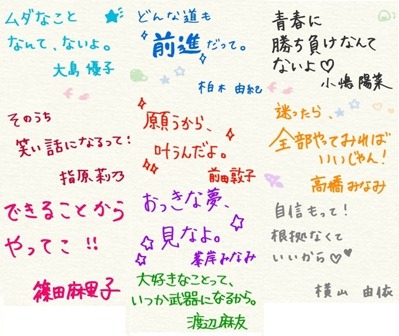 ムダなこと
なんて、ないよ。
大島優子
どんな道も
前進だって。
柏木由紀
青春に
勝ち負けなんて
ないよ♡
小嶋陽菜
そのうち
笑い話になるって!
指原莉乃
願うから、
叶うんだよ。
前田敦子
迷ったら、
全部やってみれば
いいじゃん!
高橋みなみ
できることから
やってこ!!
篠田麻里子
おっきな夢、
見なよ。
峯岸みなみ
自信もって!
根拠なくて
いいから♡♡
横山由依
大好きなことって、
いつか武器になるから。
渡辺麻友